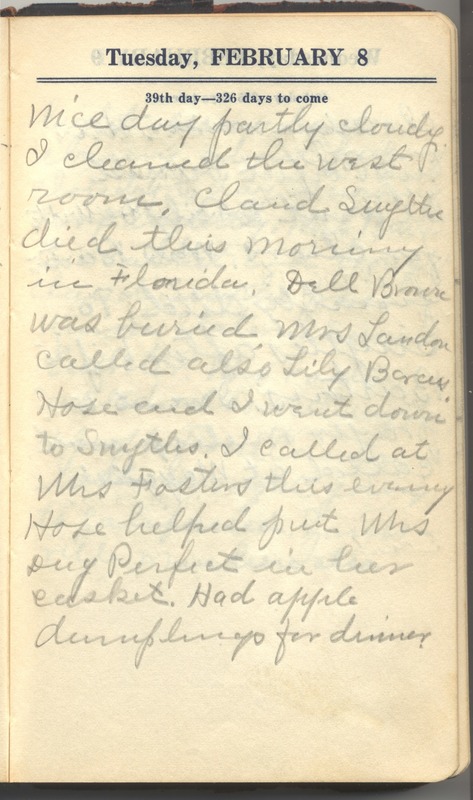 Tuesday, FEBRUARY 8
39th day—326 days to come
Nice day partly cloudy.
I cleaned the west
room. Claud Smythe
died this morning
in Florida. Dell Brown
was buried. Mrs Landon
called also Lily
Hose and I went down
to Smyths. I called at
Mrs Fosters this evening
Hose helped put Mrs
Perfect in her
casket. Had apple
dumplings for dinner.